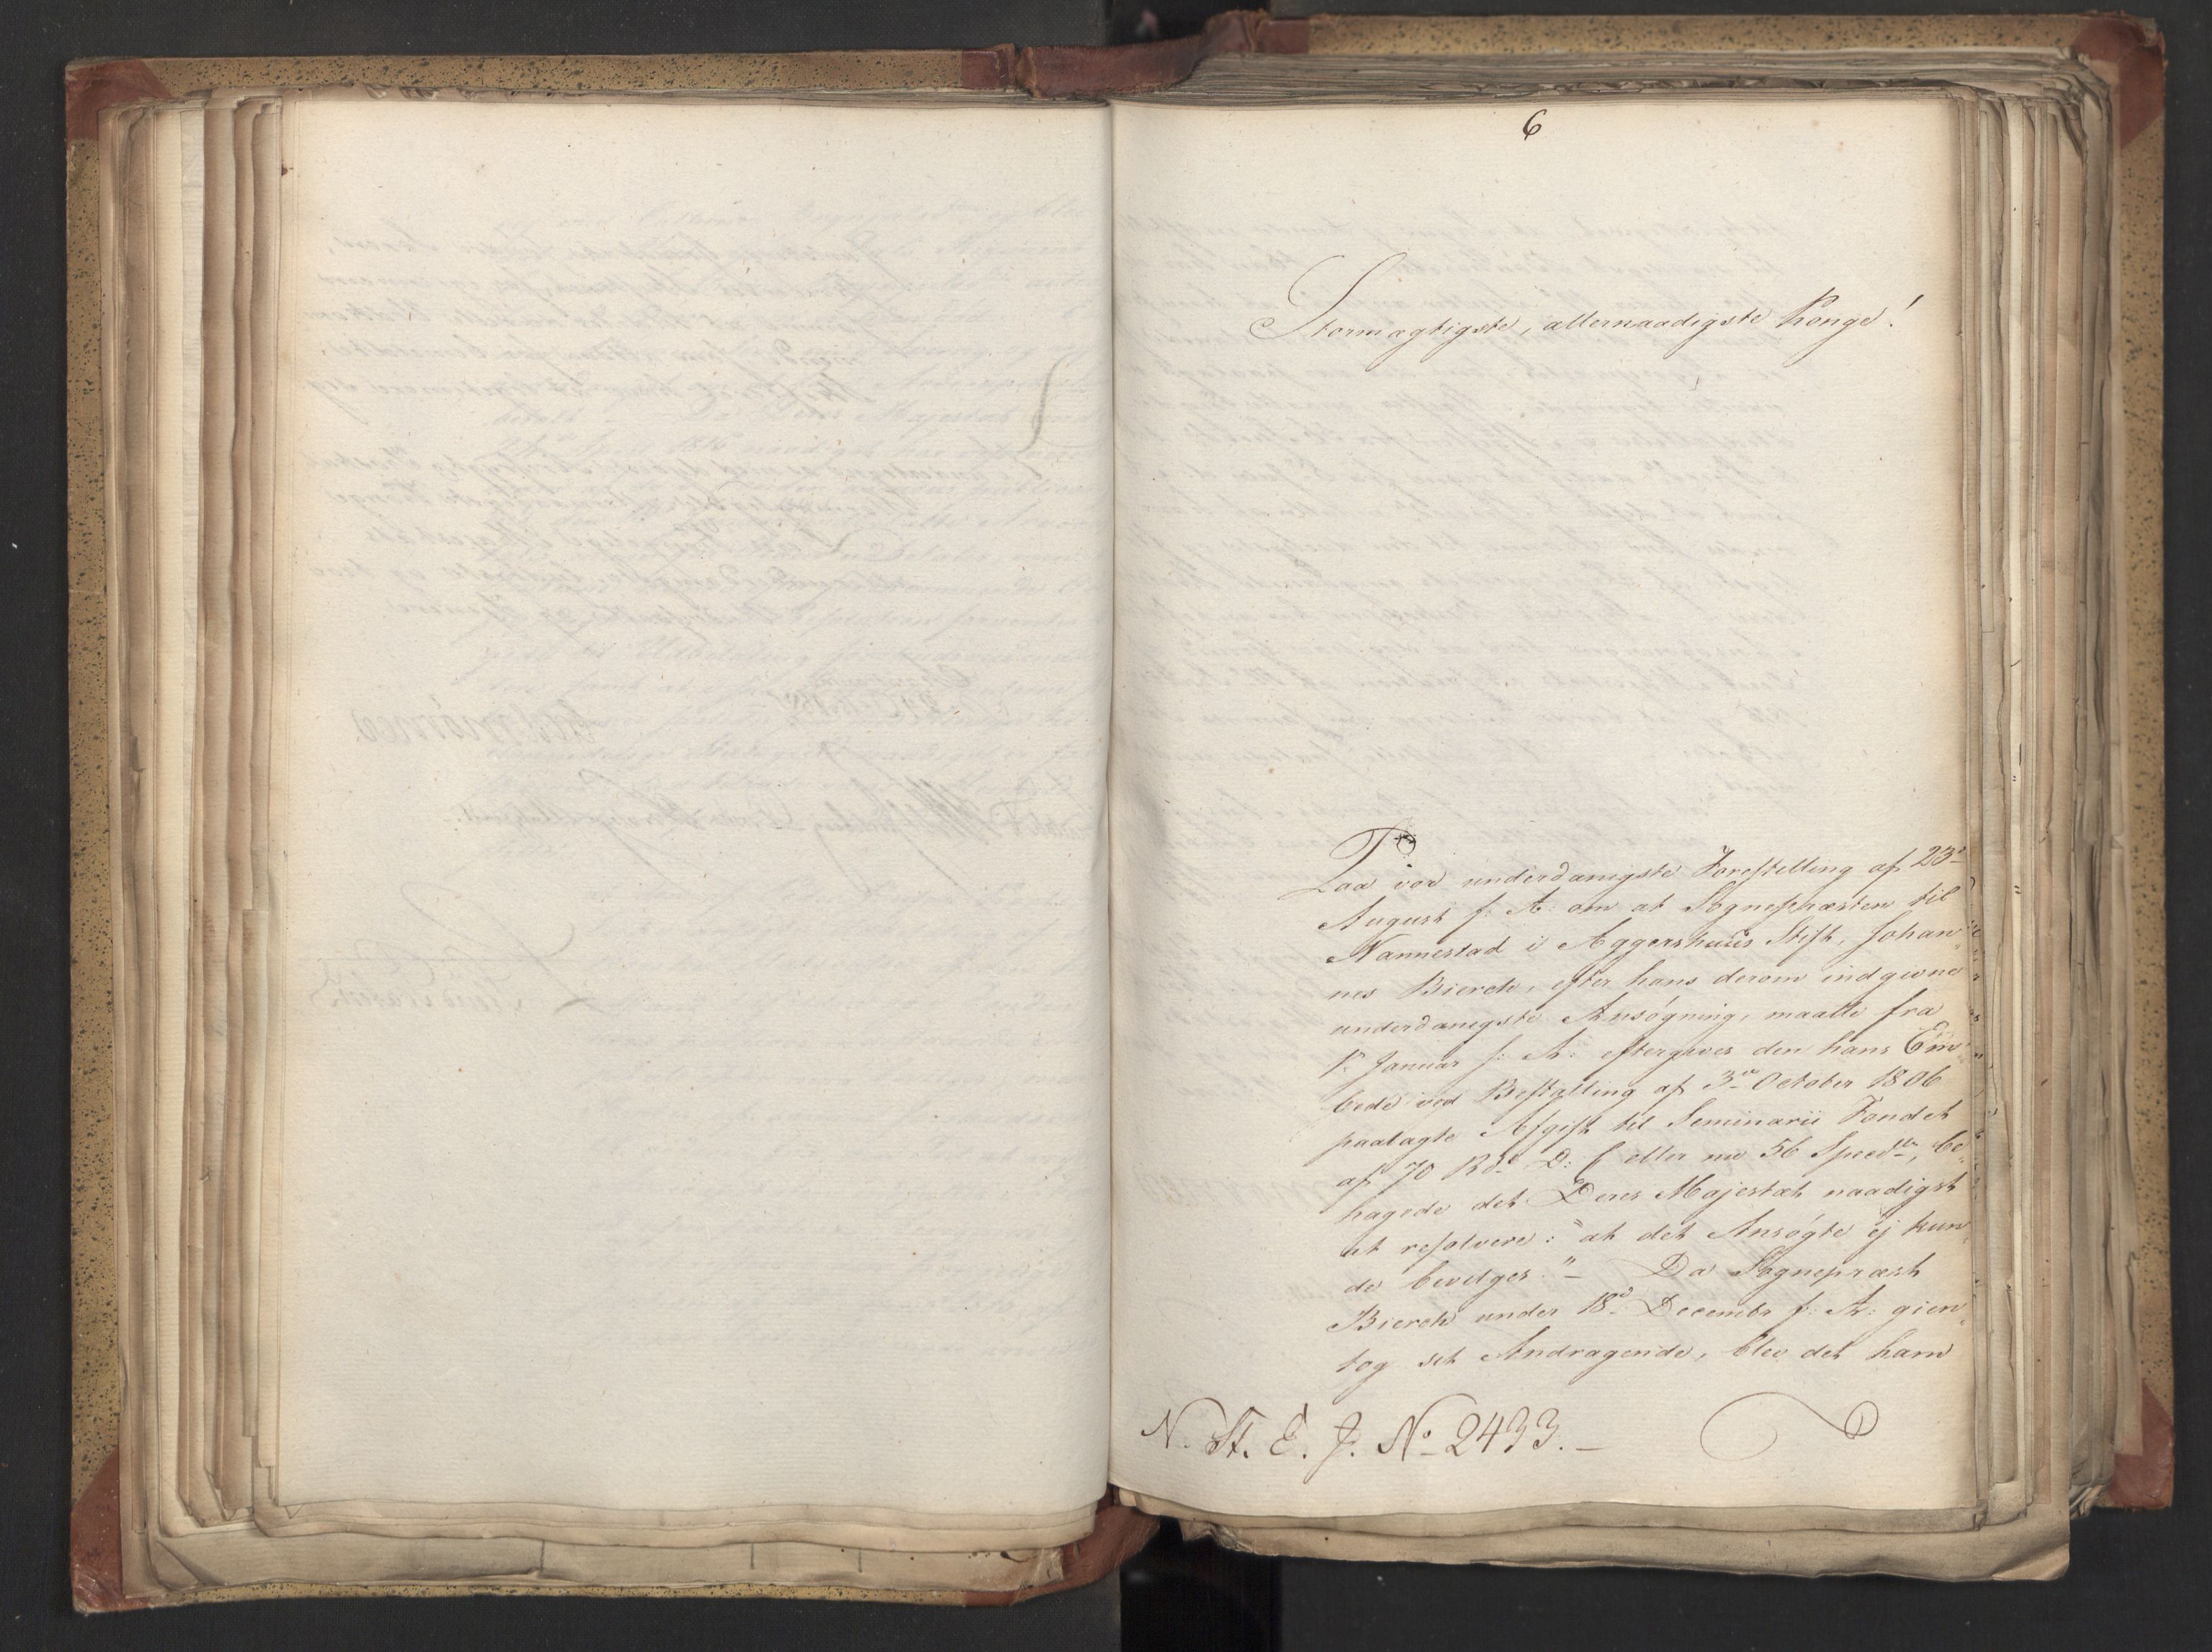 6
Stormægtigste, allernaadigste Konge!
Paa vor underdanigste Forestilling af 23d
August f: A: om at Sognepræsten til
Nannestad i Aggershuus Stift, Johan
nes Bierch, efter hans derom indgivne
underdanigste Ansøgning, maatte fra
1. Januar f: A: eftergives den hans Em
bede ved Bestalling af 3die October 1806
paalagte Afgift til Seminarii Fondet
af 70 Rd. D: C eller nu 56 Specd, be
hagede det Deres Majestæt naadigst
at resolvere: "at det Ansøgte ej kun
de bevilges." – Da Sognepræst
Bierch under 18d Decembr f: A: gien
tog sit Andragende, blev det ham
N. St. E. J. No 2433. –